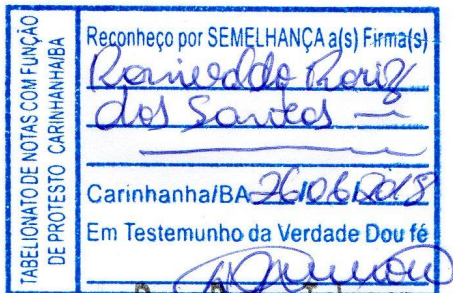 TABELIONATO DE NOTAS COM FUNÇÃO
DE PROTESTO CARINHANHA/BA
Reconheço por SEMELHANÇA a(s) Firma(s)
Romevaldo Roriz
dos Santos
Carinhanha/BA 26/06/2018
Em Testemunho da Verdade Dou fé